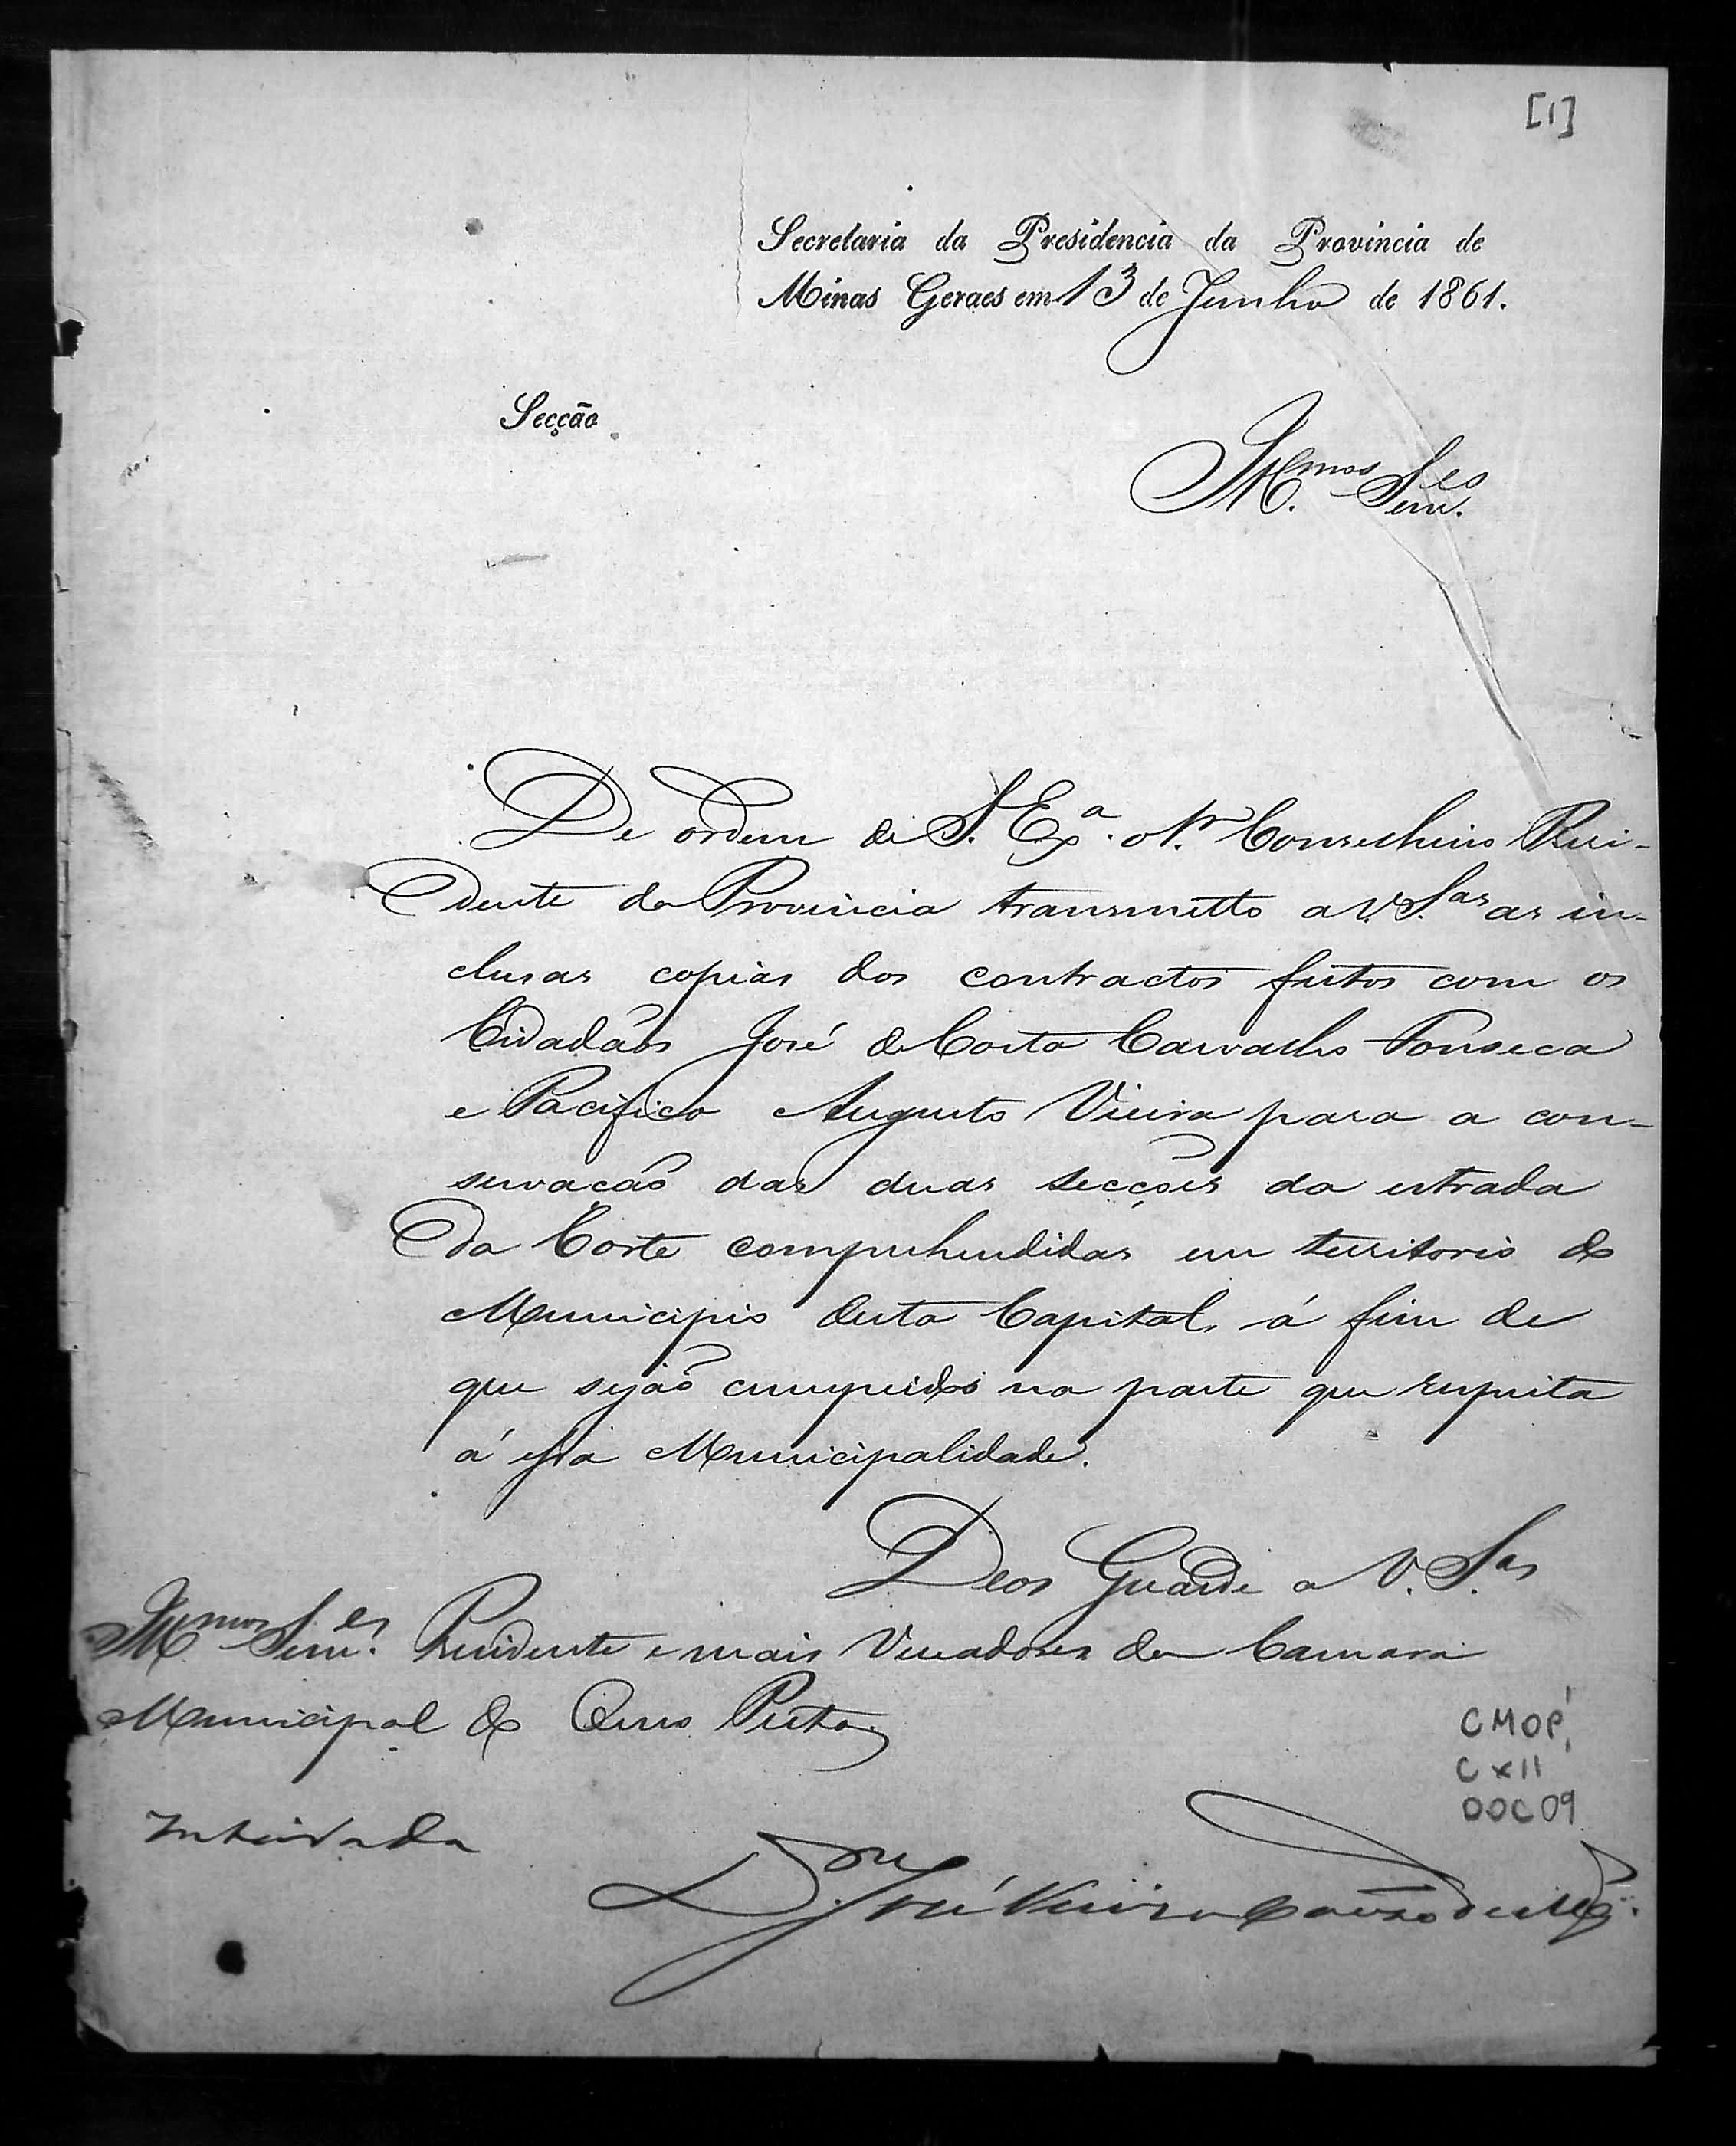 [1]
Secretaria da Presidencia da Provincia de
Minas Geraes em 13 de Junho de 1861.
Secção
Ill.mos Senr.es
De ordem de S. Ex.a o Sr. Conselheiro Presi-
dente da Provincia transmitto a V. S.as as in-
clusas copias dos contractos feitos com os
Cidadãos José da Costa Carvalho Fonseca
e Pacifico Augusto Vieira para a con-
servacão das duas secções da estrada
da Corte comprehendidas em territorio do
Municipio desta Capital, á fim de
que sejão cumpridos na parte que respeita
á essa Municipalidade.
Deos Guarde a V. S.as
Ill.mos Senr.es Presidente e mais Vereadores da Camara
Municipal do Ouro Preto.
CMOP,
CX11
DOC 09
Inteirada
José Vieira Couto de